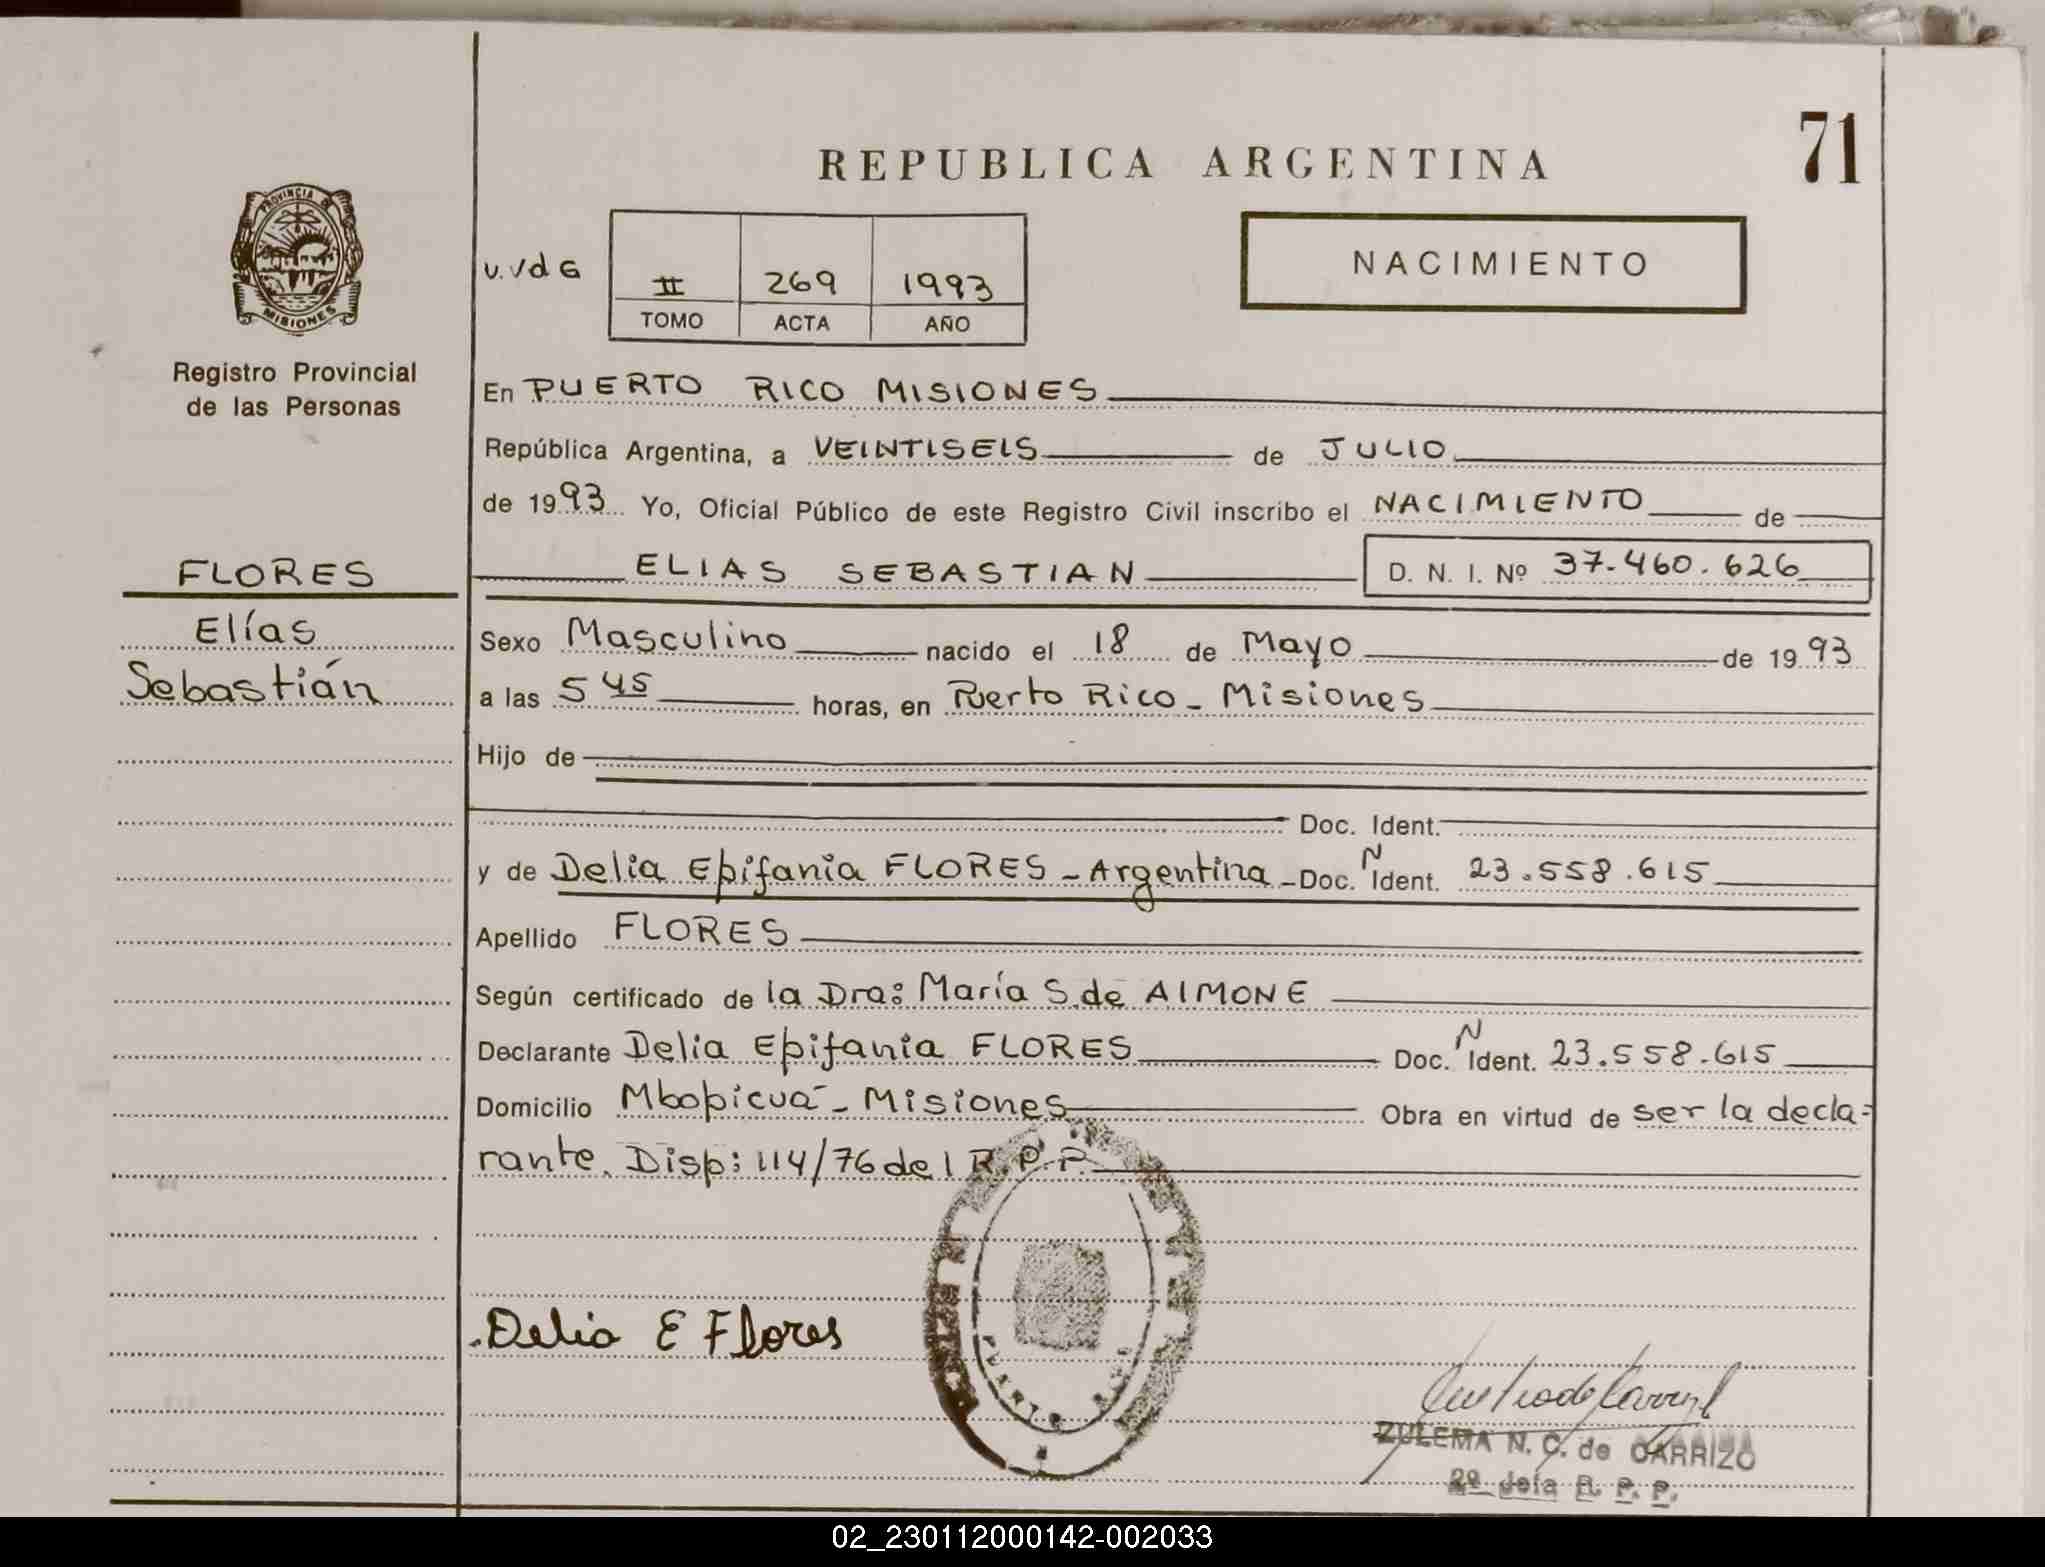 71
REPUBLICA ARGENTINA
PROVINCIA DE
MISIONES
Registro Provincial
de las Personas
NACIMIENTO
u.vdG
II 269 1993
TOMO ACTA AÑO
En PUERTO RICO MISIONES
República Argentina, a VEINTISEIS de JULIO
de 1993 Yo, Oficial Público de este Registro Civil inscribo el NACIMIENTO de
FLORES
ELIAS SEBASTIAN D. N. I. Nº 37.460.626
Elías
Sebastián
Sexo Masculino nacido el 18 de Mayo de 1993
a las 5 45 horas, en Puerto Rico - Misiones
Hijo de
Doc. Ident.
y de Delia Epifanía FLORES - Argentina - Doc. N Ident. 23.558.615
Apellido FLORES
Según certificado de la Dra: María S. de AIMONE
Declarante Delia Epifanía FLORES Doc. N Ident. 23.558.615
Domicilio Mbopicuá - Misiones Obra en virtud de ser la decla=
rante. Disp: 114/76 del R.P.P.
Delia E Flores
PUERTO RICO
ZULEMA N. C. de CARRIZO
2º Jefa R. P. P.
02_230112000142-002033